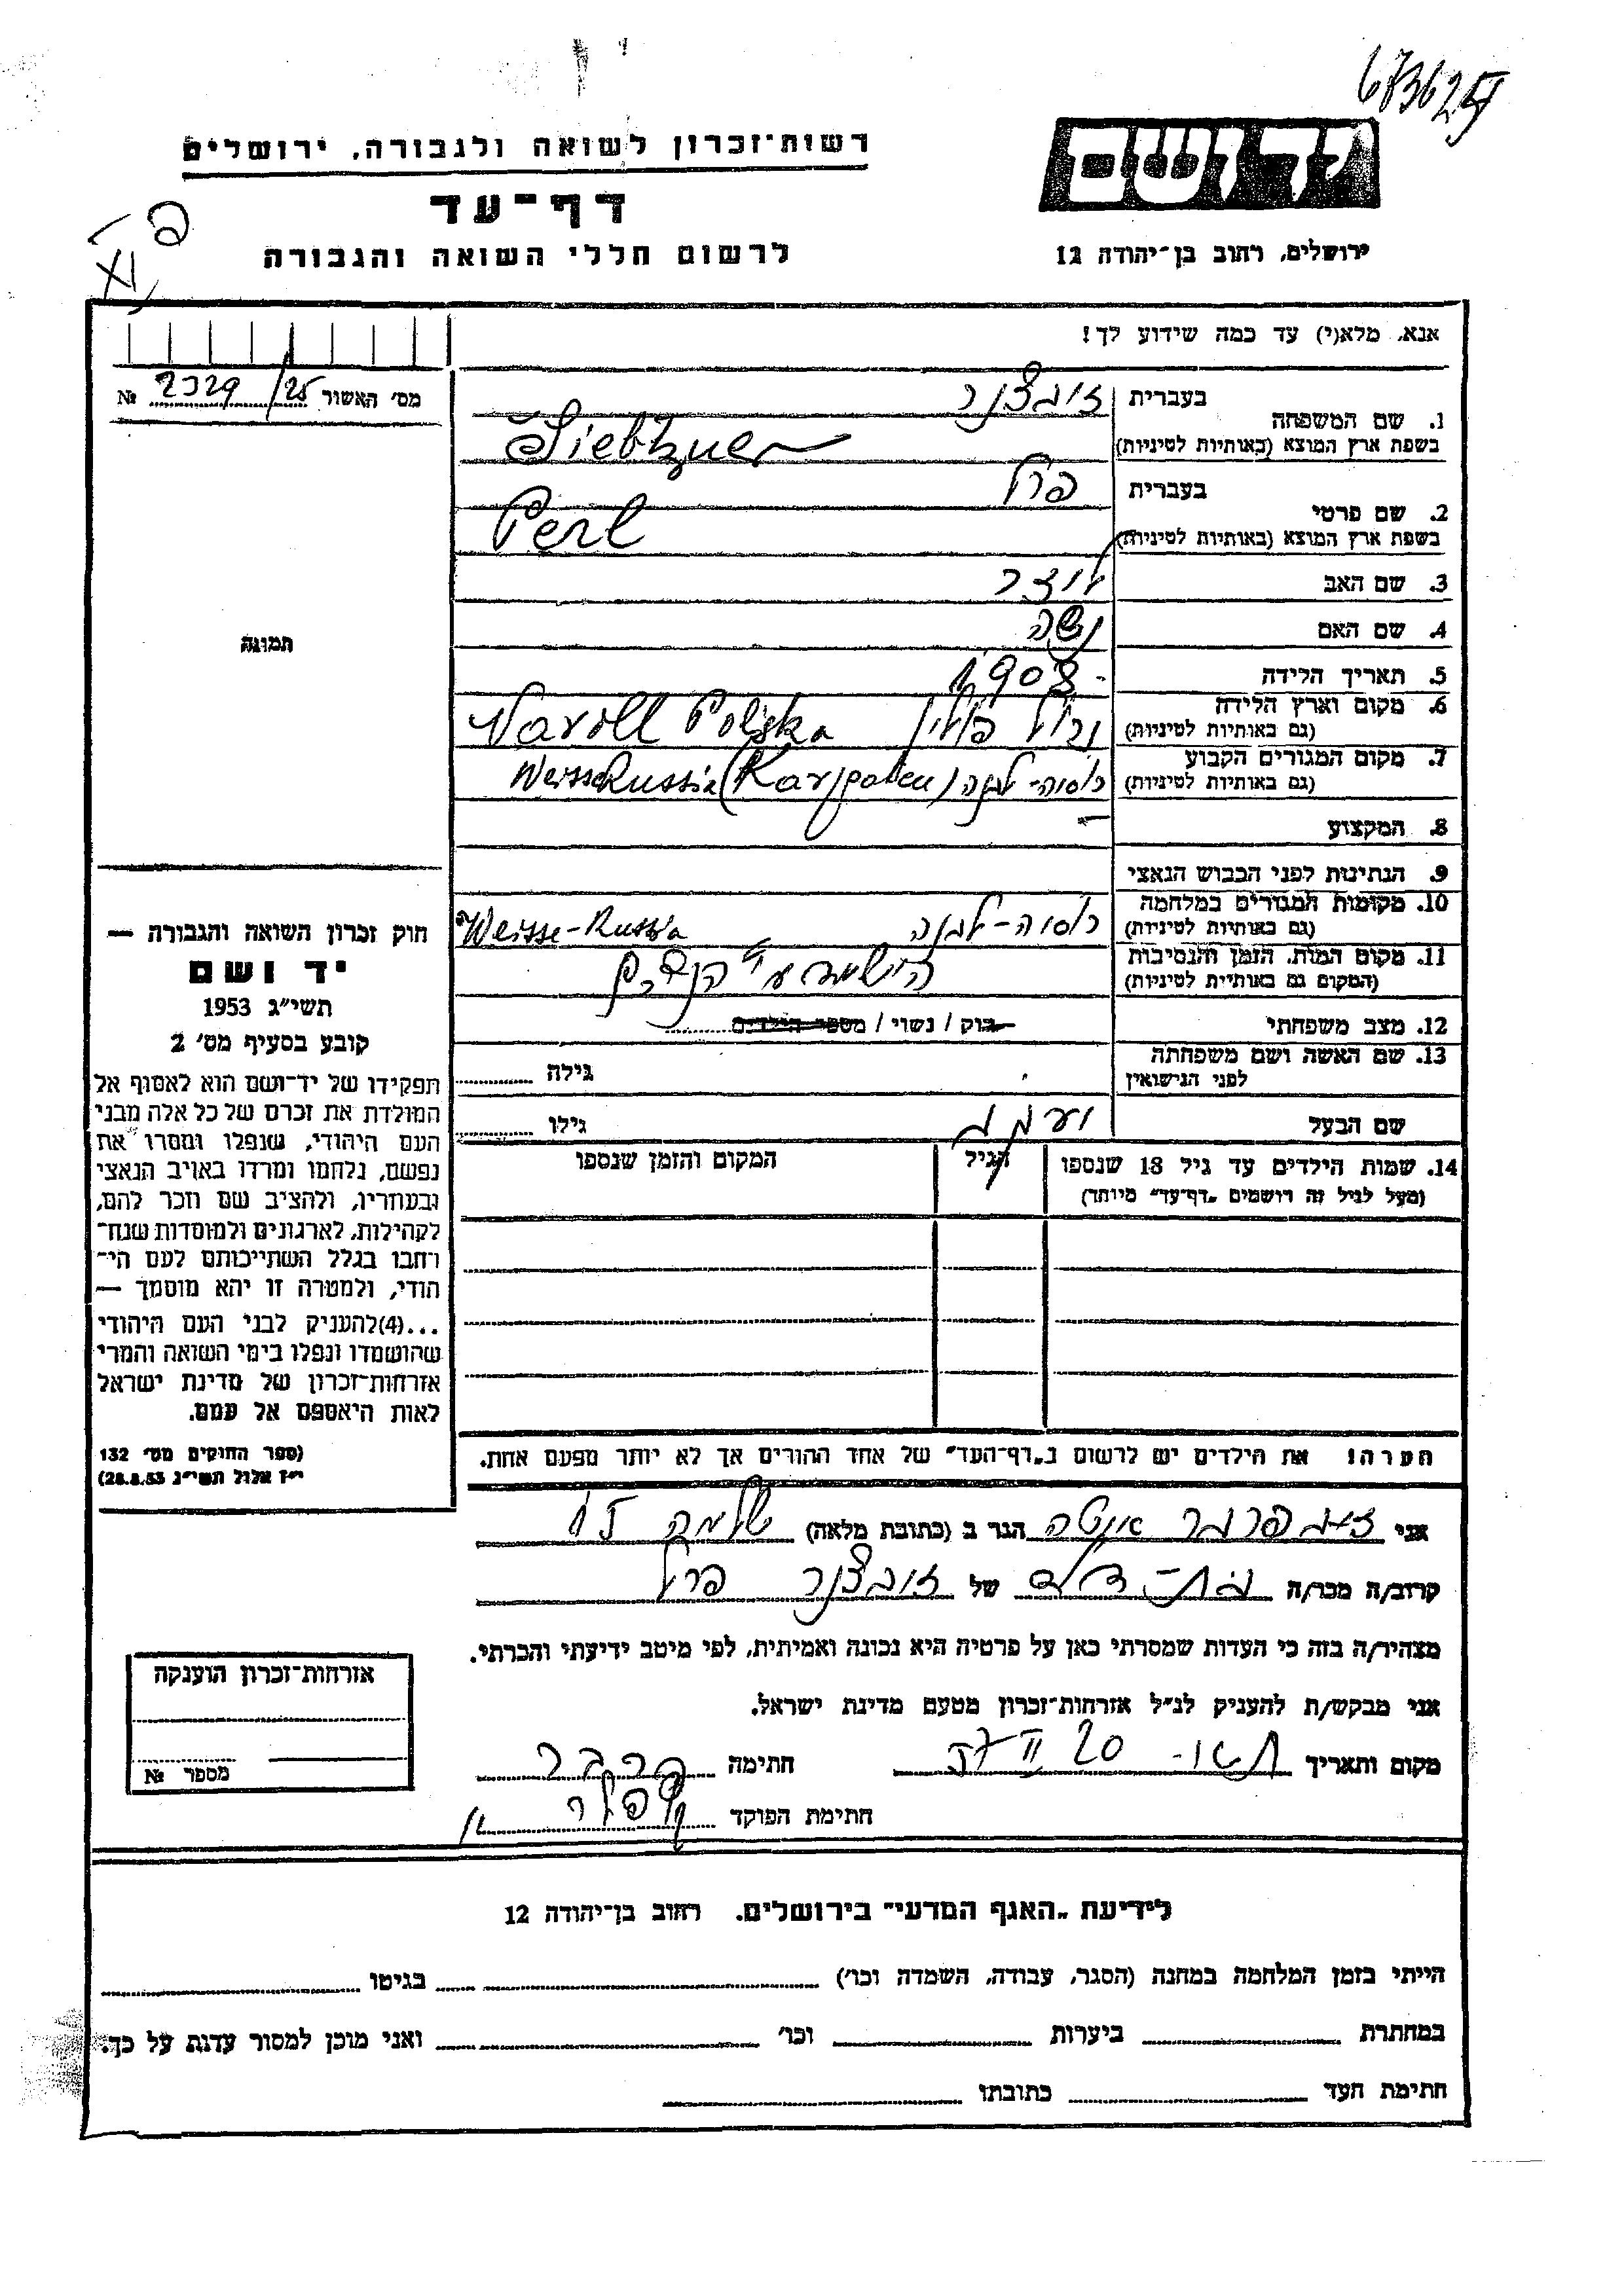 673625
רשות־זכרון לשואה ולגבורה, ירושלים
דף־עד
לרשום חללי השואה והגבורה
יד ושם
ירושלים, רחוב בן־יהודה 12
אנא, מלא(י) עד כמה שידוע לך!
מס׳ האשור 25/ 2329 №
1. שם המשפחה
בעברית זיבצנר
בשפת ארץ המוצא (באותיות לטיניות) Siebzner
2. שם פרטי
בעברית פרל
בשפת ארץ המוצא (באותיות לטיניות) Perl
3. שם האב
4. שם האם
5. תאריך הלידה 1908
6. מקום וארץ הלידה
(גם באותיות לטיניות) נרול פולין Naroll Polska
7. מקום המגורים הקבוע
(גם באותיות לטיניות) רוסיה-לבנה Weisse Russia (Karpaten)
8. המקצוע -
9. הנתינות לפני הכבוש הנאצי
10. מקומות המגורים במלחמה
(גם באותיות לטיניות) רוסיה-לבנה Weisse-Russia
11. מקום המות, הזמן והנסיבות
(המקום גם באותיות לטיניות) הושמדה ע"י הנאצים
12. מצב משפחתי רוק / נשוי / מספר הילדים
13. שם האשה ושם משפחתה
לפני הנישואין
גילה
שם הבעל
גילו
14. שמות הילדים עד גיל 18 שנספו
(מעל לגיל זה רושמים „דף־עד״ מיוחד)
הגיל
המקום והזמן שנספו
הערה! את הילדים יש לרשום ב„דף־העד״ של אחד ההורים אך לא יותר מפעם אחת.
תמונה
חוק זכרון השואה והגבורה —
יד ושם
תשי״ג 1953
קובע בסעיף מס׳ 2
תפקידו של יד־ושם הוא לאסוף אל
המולדת את זכרם של כל אלה מבני
העם היהודי, שנפלו ומסרו את
נפשם, נלחמו ומרדו באויב הנאצי
ובעוזריו, ולהציב שם וזכר להם,
לקהילות, לארגונים ולמוסדות שנח־
רחבו בגלל השתייכותם לעם הי־
הודי, ולמטרה זו יהא מוסמך —
...(4)להעניק לבני העם היהודי
שהושמדו ונפלו בימי השואה והמרי
אזרחות־זכרון של מדינת ישראל
לאות היאספם אל עמם.
(ספר החוקים מס׳ 132
י״ז אלול תשי״ג 28.8.53)
אני פרבר הגר ב (כתובת מלאה) שלמה
קרוב/ה מכר/ה בת-דוד של זיבצנר פרל
מצהיר/ה בזה כי העדות שמסרתי כאן על פרטיה היא נכונה ואמיתית, לפי מיטב ידיעתי והכרתי.
אני מבקש/ת להעניק לנ״ל אזרחות־זכרון מטעם מדינת ישראל.
מקום ותאריך 20 II 57 חתימה פרבר
חתימת הפוקד
אזרחות־זכרון הוענקה
מספר №
לידיעת „האגף המדעי״ בירושלים, רחוב בן־יהודה 12
הייתי בזמן המלחמה במחנה (הסגר, עבודה, השמדה וכו׳) בגיטו
במחתרת ביערות וכו׳ ואני מוכן למסור עדות על כך.
חתימת העד כתובתו